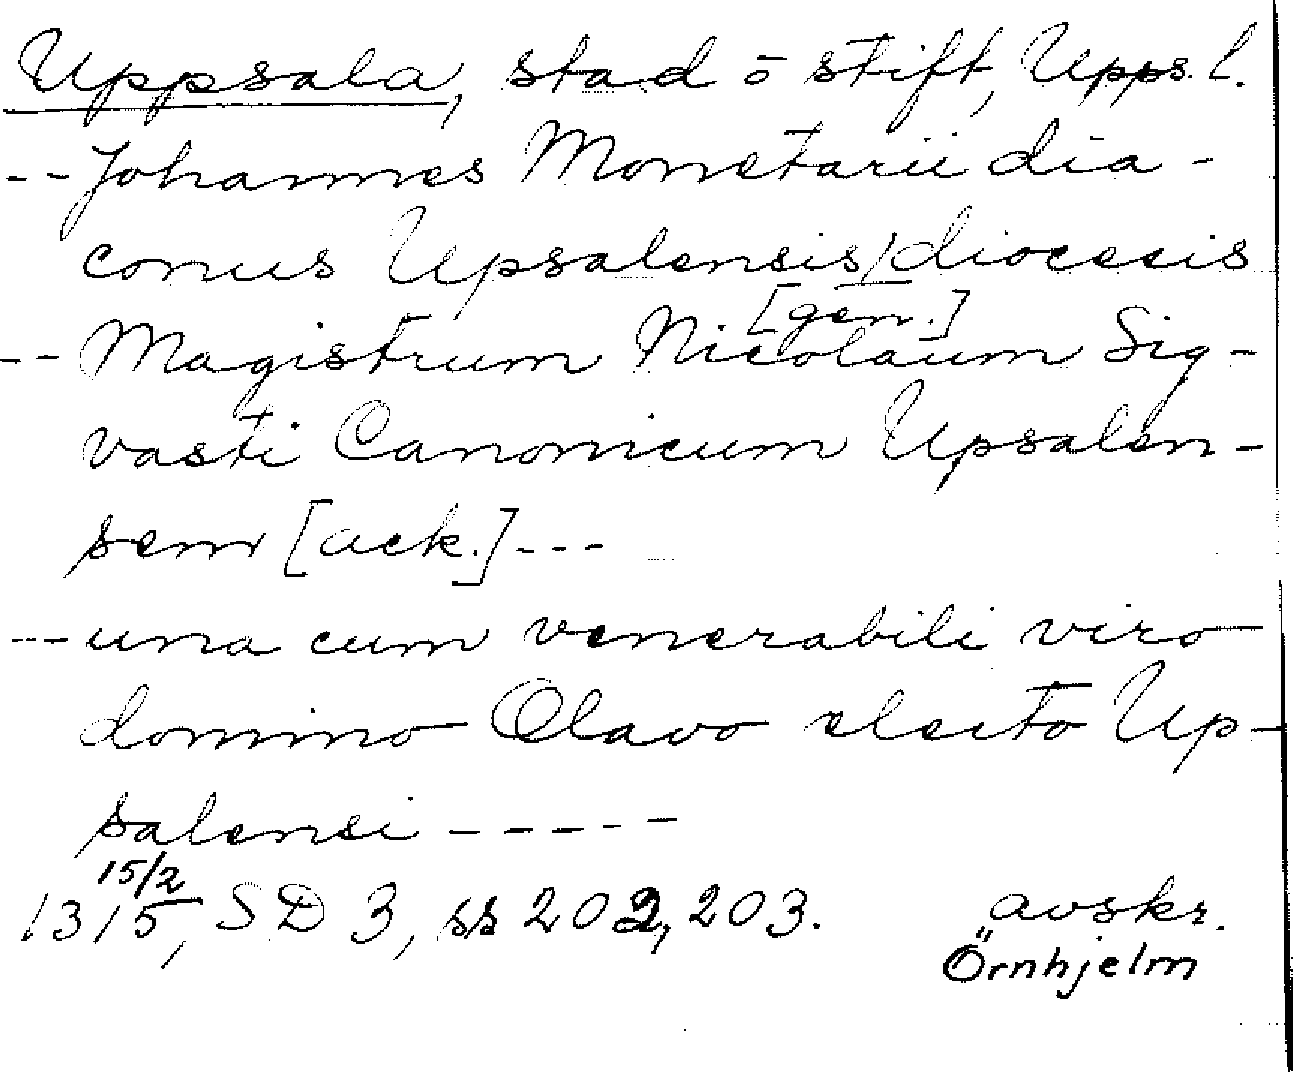 Uppsala, stad o stift, Upps. l.
-- Johannes Monetarii dia-
conus Upsalensis/diocesis
[gen.]
-- Magistrum Nicolaum Sig-
vasti Canonicum Upsalen-
sem [ack.]---
--- una cum venerabili viro
domino Olavo electo Up-
salensi -----
15/2
1315, SD 3, ss 202, 203. avskr.
Örnhjelm